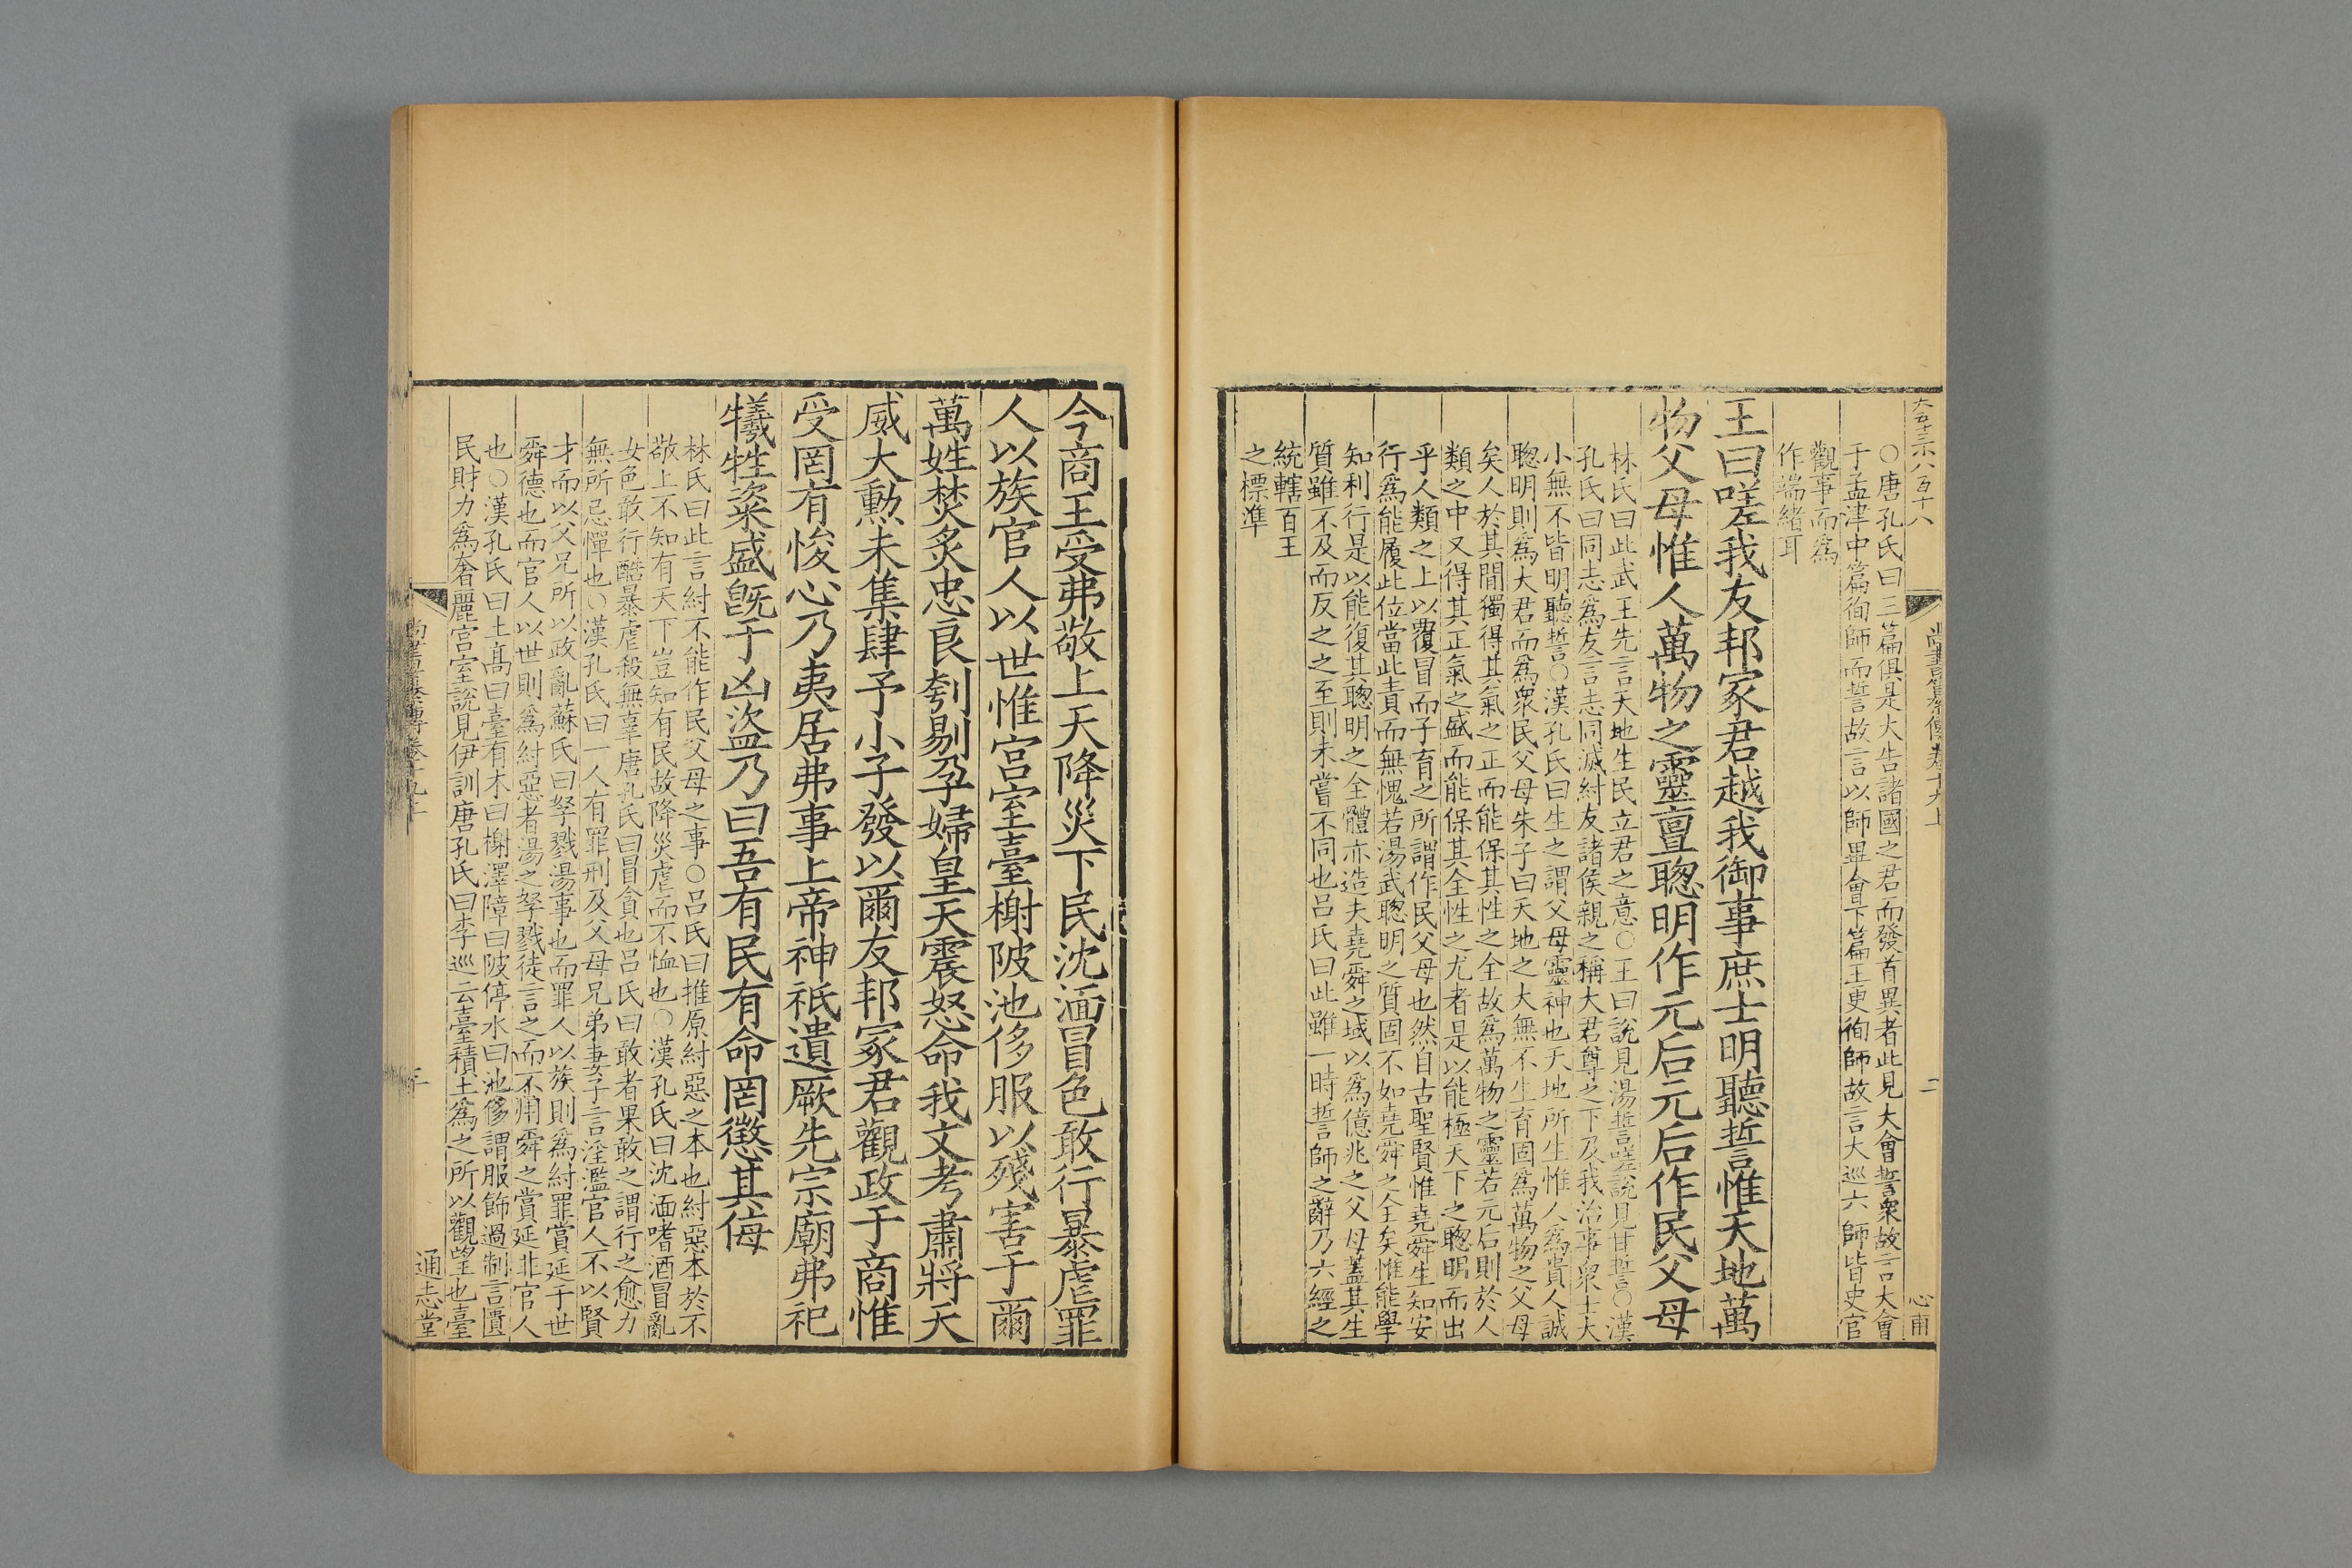 大五十三小八百十八
尚書纂傳卷十九上
二
心甫
○唐孔氏曰三篇俱是大告諸國之君而發首異者此見大會誓衆故言大會
于孟津中篇徇師而誓故言以師畢會下篇王更徇師故言大巡六師皆史官
觀事而爲
作端緒耳
王曰嗟我友邦冢君越我御事庶士明聽誓惟天地萬
物父母惟人萬物之靈亶聰明作元后元后作民父母
林氏曰此武王先言天地生民立君之意○王曰說見湯誓嗟說見甘誓○漢
孔氏曰同志爲友言志同滅紂友諸侯親之稱大君尊之下及我治事衆士大
小無不皆明聽誓○漢孔氏曰生之謂父母靈神也天地所生惟人爲貴人誠
聰明則爲大君而爲衆民父母朱子曰天地之大無不生育固爲萬物之父母
矣人於其間獨得其氣之正而能保其性之全故爲萬物之靈若元后則於人
類之中又得其正氣之盛而能保其全性之尤者是以能極天下之聰明而出
乎人類之上以覆冒而子育之所謂作民父母也然自古聖賢惟堯舜生知安
行爲能履此位當此責而無愧若湯武聰明之質固不如堯舜之全矣惟能學
知利行是以能復其聰明之全體亦造夫堯舜之域以爲億兆之父母蓋其生
質雖不及而反之之至則未嘗不同也呂氏曰此雖一時誓師之辭乃六經之
統轄百王
之標準
今商王受弗敬上天降災下民沈湎冒色敢行暴虐罪
人以族官人以世惟宮室臺榭陂池侈服以殘害于爾
萬姓焚炙忠良刳剔孕婦皇天震怒命我文考肅將天
威大勳未集肆予小子發以爾友邦冢君觀政于商惟
受罔有悛心乃夷居弗事上帝神祇遺厥先宗廟弗祀
犧牲粢盛旣于凶盜乃曰吾有民有命罔懲其侮
林氏曰此言紂不能作民父母之事○呂氏曰推原紂惡之本也紂惡本於不
敬上不知有天下豈知有民故降災虐而不恤也○漢孔氏曰沈湎嗜酒冒亂
女色敢行酷暴虐殺無辜唐孔氏曰冒貪也呂氏曰敢者果敢之謂行之愈力
無所忌憚也○漢孔氏曰一人有罪刑及父母兄弟妻子言淫濫官人不以賢
才而以父兄所以政亂蘇氏曰孥戮湯事也而罪人以族則爲紂罪賞延于世
舜德也而官人以世則爲紂惡者湯之孥戮徒言之而不用舜之賞延非官人
也○漢孔氏曰土高曰臺有木曰榭澤障曰陂停水曰池侈謂服飾過制言匱
民財力爲奢麗宮室說見伊訓唐孔氏曰李巡云臺積土爲之所以觀望也臺
通志堂